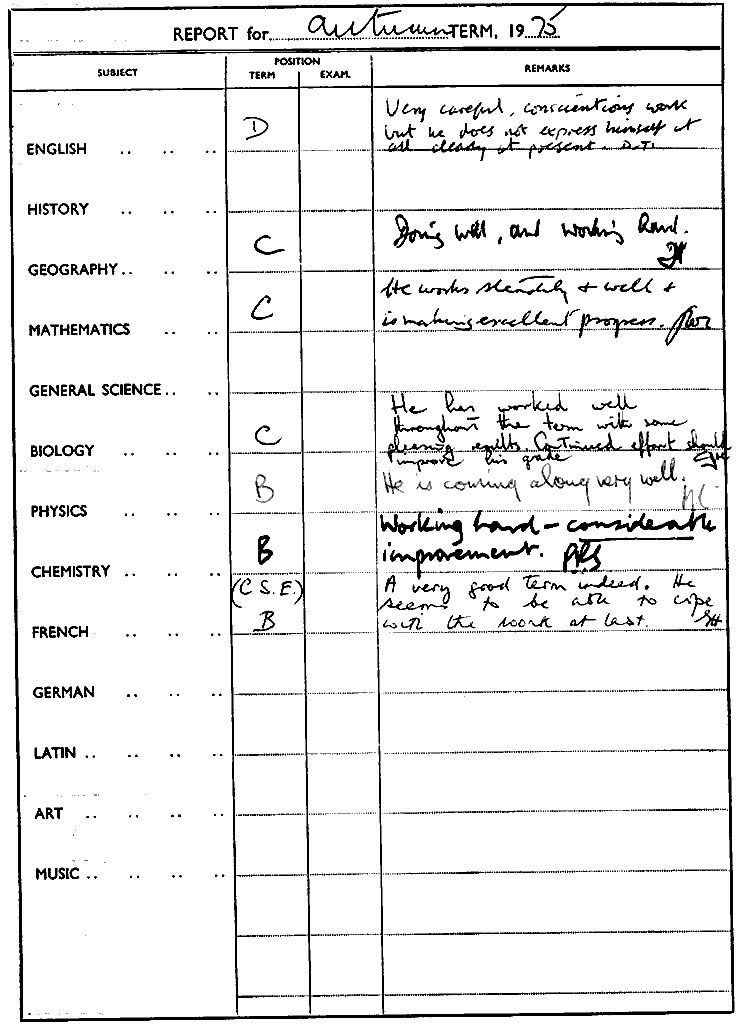 REPORT for Autumn TERM, 1975
SUBJECT
POSITION
TERM EXAM.
REMARKS
ENGLISH .. .. ..
D
Very careful, conscientious work
but he does not express himself at
all clearly at present. D.T.
HISTORY .. .. ..
GEOGRAPHY .. .. ..
C
Doing well, and working hard.
MATHEMATICS .. ..
C
He works steadily & well &
is making excellent progress.
GENERAL SCIENCE .. ..
BIOLOGY .. .. ..
C
He has worked well
throughout the term with some
pleasing results. Continued effort should
improve his grade
PHYSICS .. .. ..
B
He is coming along very well.
CHEMISTRY .. .. ..
B
Working hard – considerable
improvement.
FRENCH .. .. ..
(C S.E.)
B
A very good term indeed. He
seems to be able to cope
with the work at last.
GERMAN .. .. ..
LATIN .. .. .. ..
ART .. .. .. ..
MUSIC .. .. .. ..